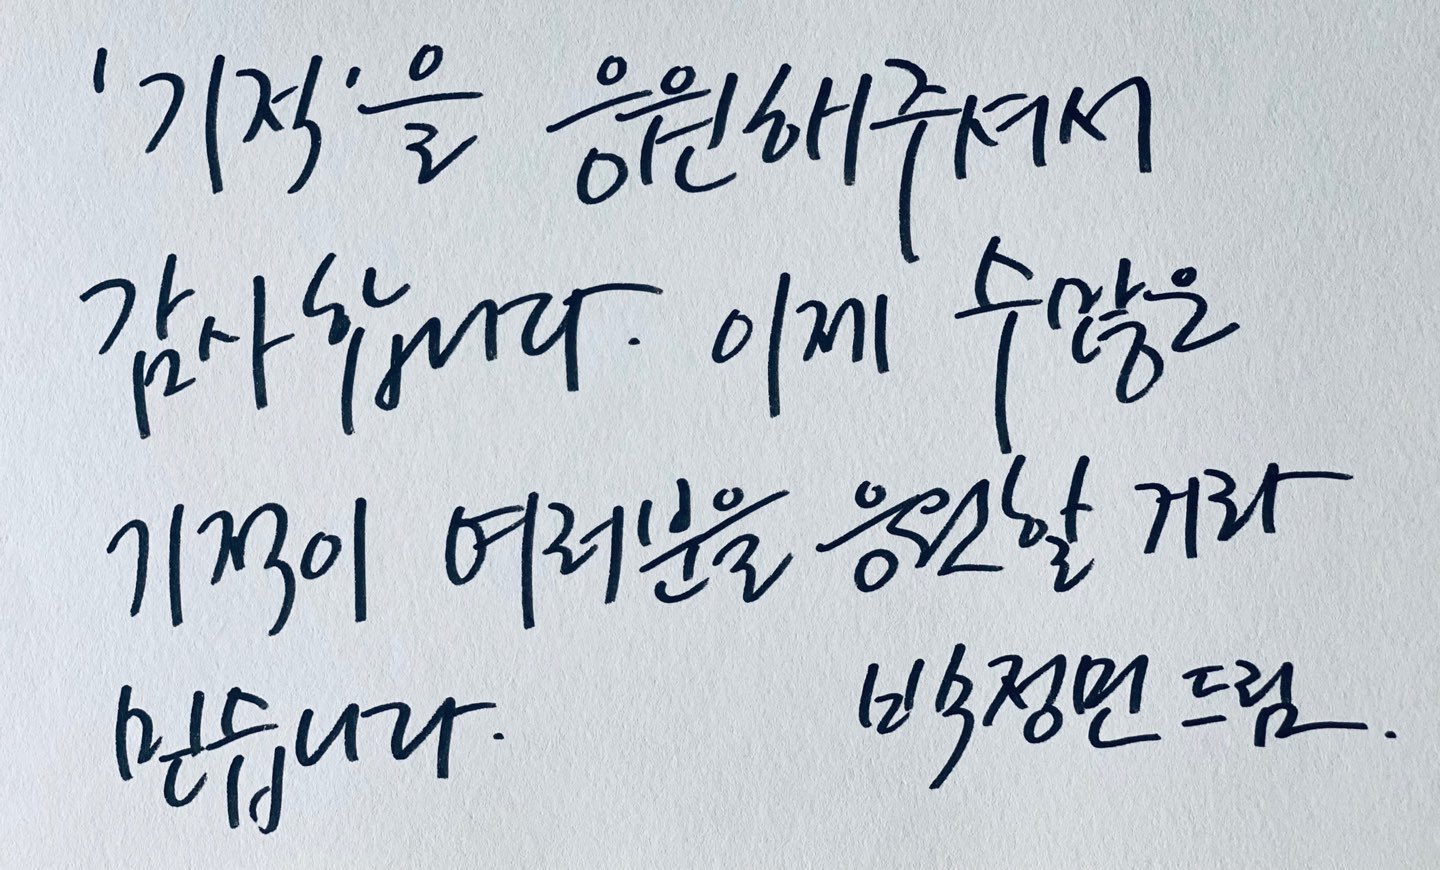 '기적'을 응원해주셔서
감사합니다. 이제 수많은
기적이 여러분을 응원할 거라
믿습니다. 박정민 드림.